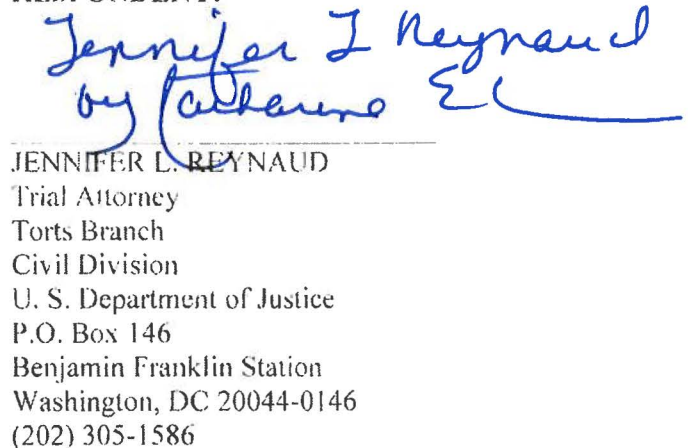 Jennifer L Reynaud
by Catharine E
JENNIFER L. REYNAUD
Trial Attorney
Torts Branch
Civil Division
U. S. Department of Justice
P.O. Box 146
Benjamin Franklin Station
Washington, DC 20044-0146
(202) 305-1586